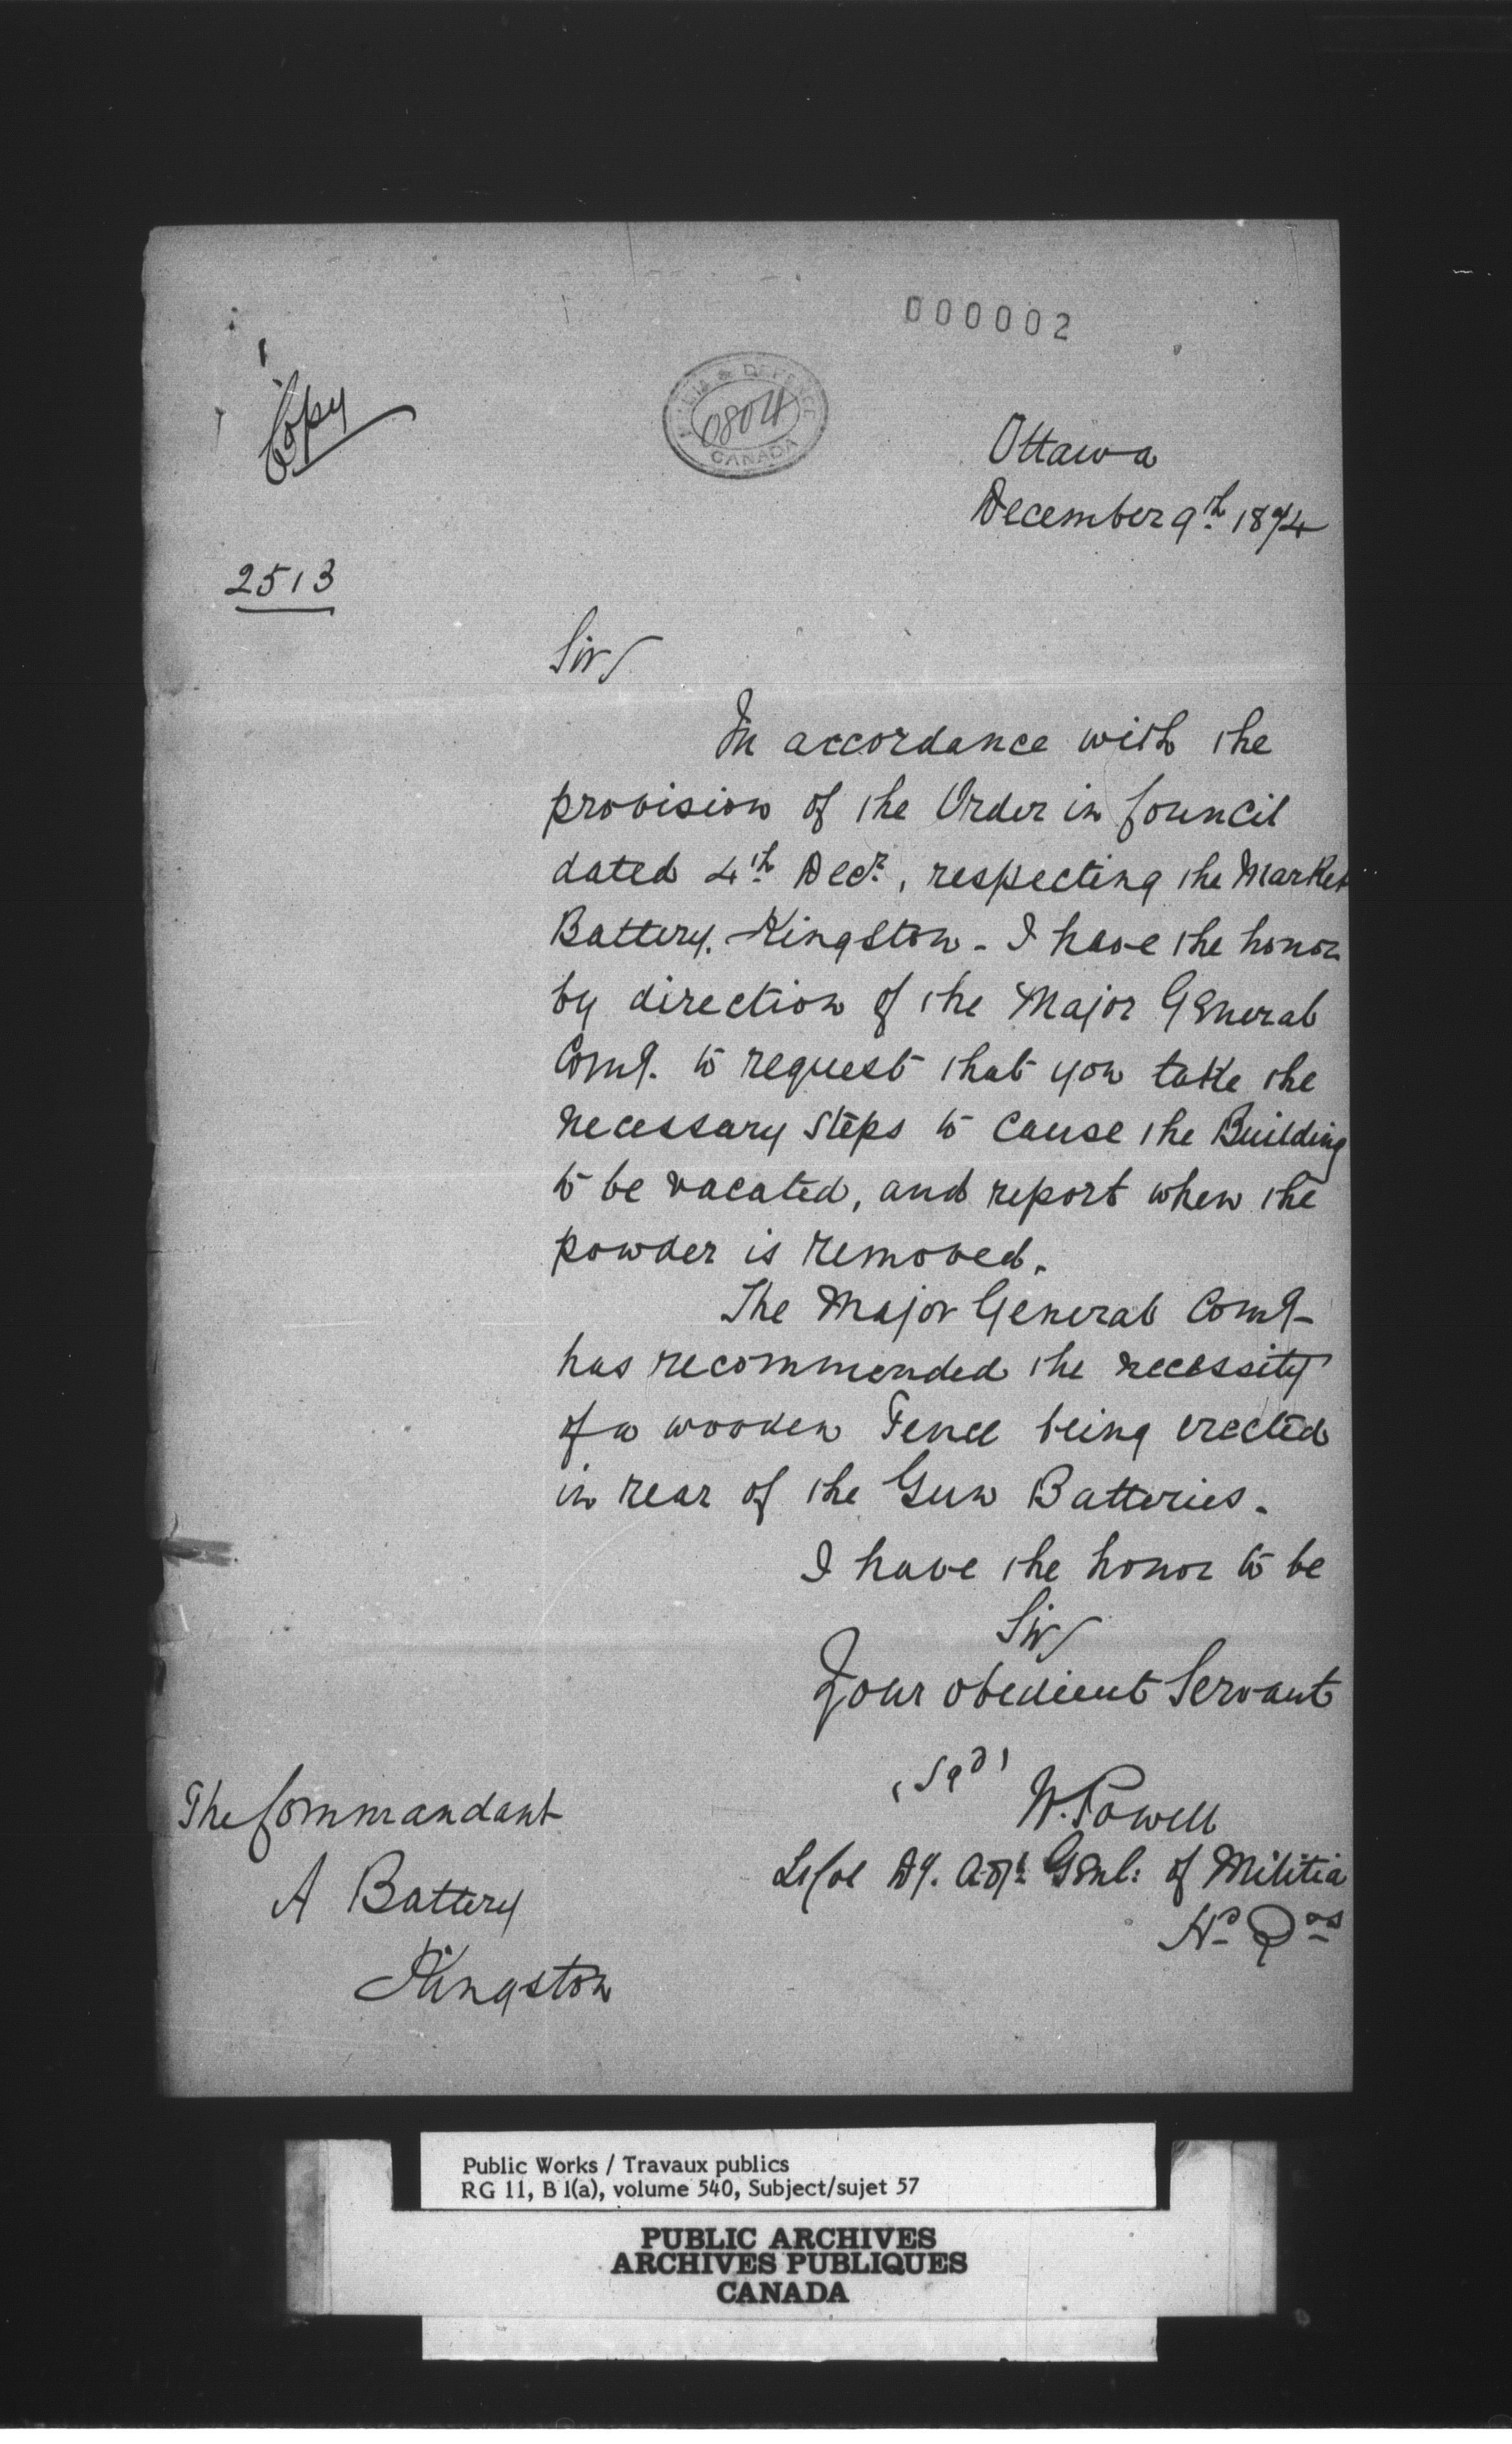 000002
Copy
MILITIA & DEFENCE
0804
CANADA
Ottawa
December 9th 1874
2513
Sir
In accordance with the
provision of the Order in Council
dated 4th Decr., respecting the Market
Battery. Kingston - I have the honor
by direction of the Major General
Comg. to request that you take the
necessary steps to cause the Building
to be vacated, and report when the
powder is removed.
The Major General Comg-
has recommended the necessity
of a wooden Fence being erected
in rear of the Gun Batteries.
I have the honor to be
Sir
Your obedient Servant
(Sgd)
W. Powell
Lt Col Dy. Adjt Genl: of Militia
Hd Qrs
The Commandant
A Battery
Kingston
Public Works / Travaux publics
RG 11, B 1(a), volume 540, Subject/sujet 57
PUBLIC ARCHIVES
ARCHIVES PUBLIQUES
CANADA